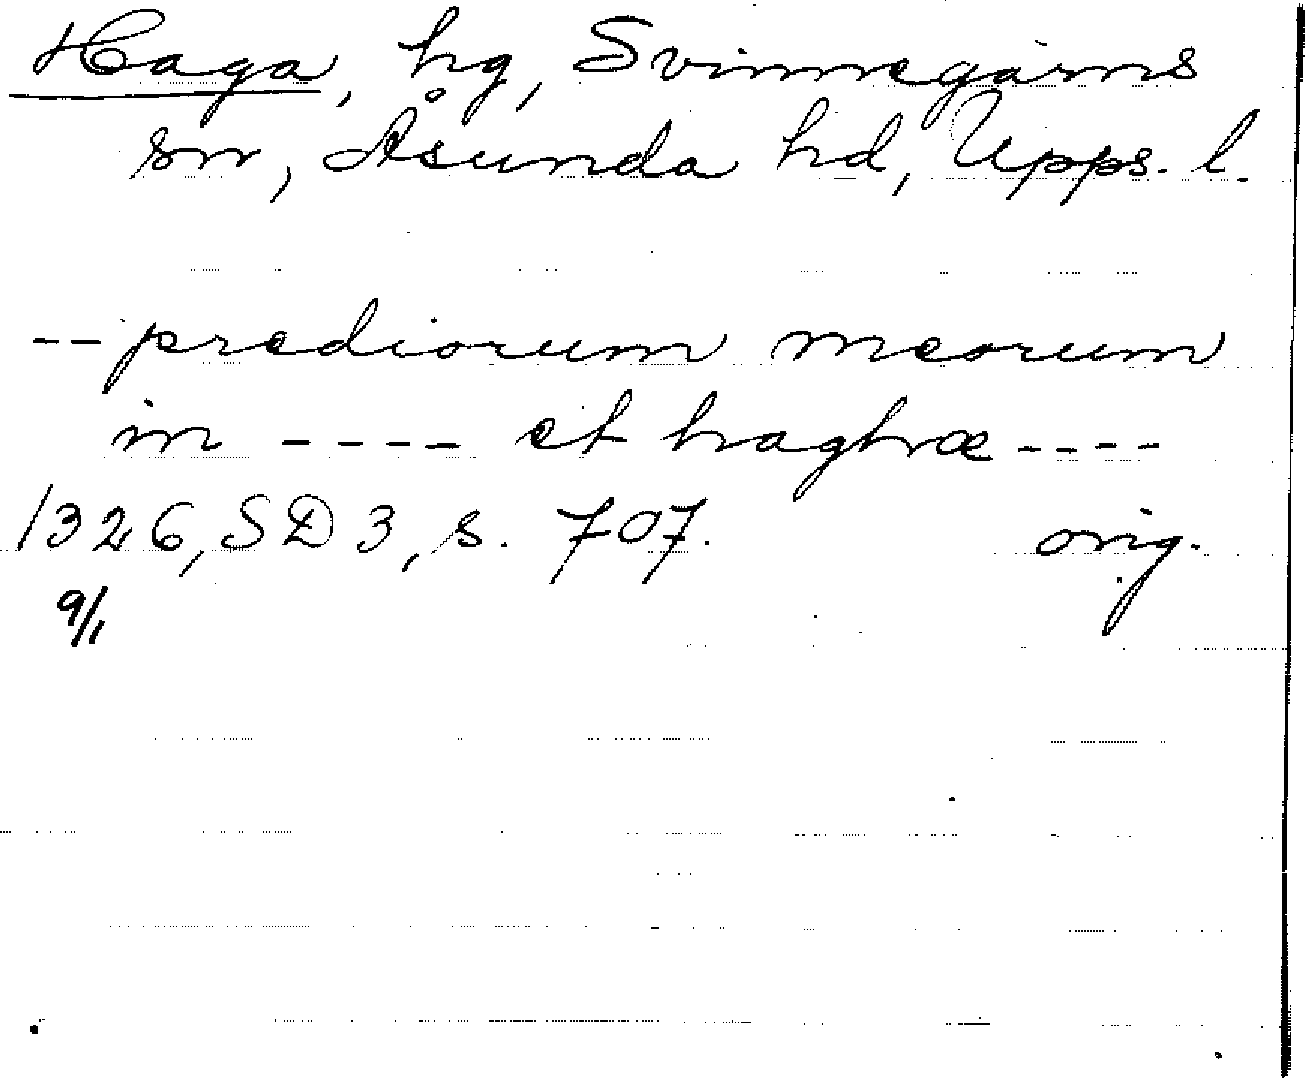 Haga, hg, Svinnegarns
sn, Åsunda hd, Upps. l.
-- prediorum meorum
in ---- et haghæ ----
1326, SD 3, s. 707. orig.
9/1